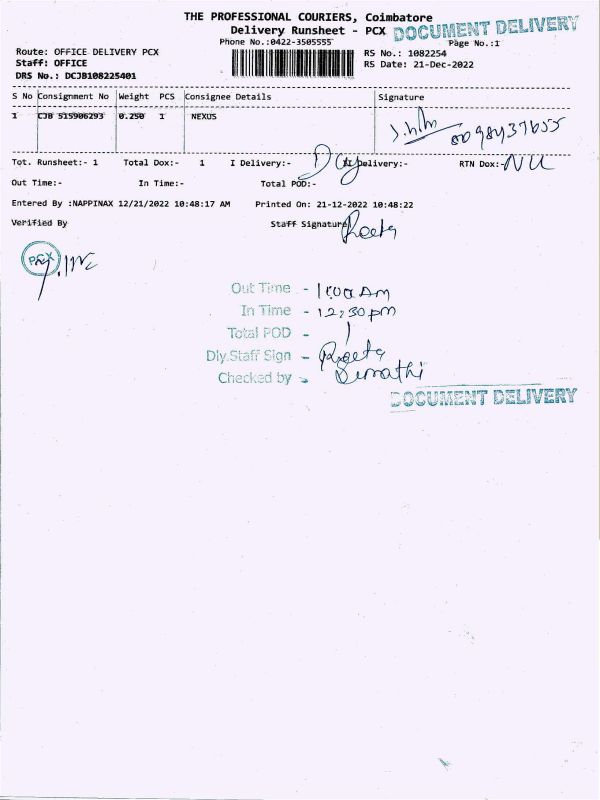 THE PROFESSIONAL COURIERS, Coimbatore
Delivery Runsheet - PCX
DOCUMENT DELIVERY
Phone No.:0422-3505555
Page No.:1
Route: OFFICE DELIVERY PCX
RS No.: 1082254
Staff: OFFICE
RS Date: 21-Dec-2022
DRS No.: DCJB108225401
S No Consignment No Weight PCS Consignee Details Signature
1 CJB 515906293 0.250 1 NEXUS
Tot. Runsheet:- 1 Total Dox:- 1 I Delivery:- II Delivery:- RTN Dox:- Nil
Out Time:- In Time:- Total POD:-
Entered By :NAPPINAX 12/21/2022 10:48:17 AM Printed On: 21-12-2022 10:48:22
Verified By Staff Signature
PCX
Out Time - 11:00 Am
In Time - 12:30 pm
Total POD - 1
Dly.Staff Sign -
Checked by -
DOCUMENT DELIVERY